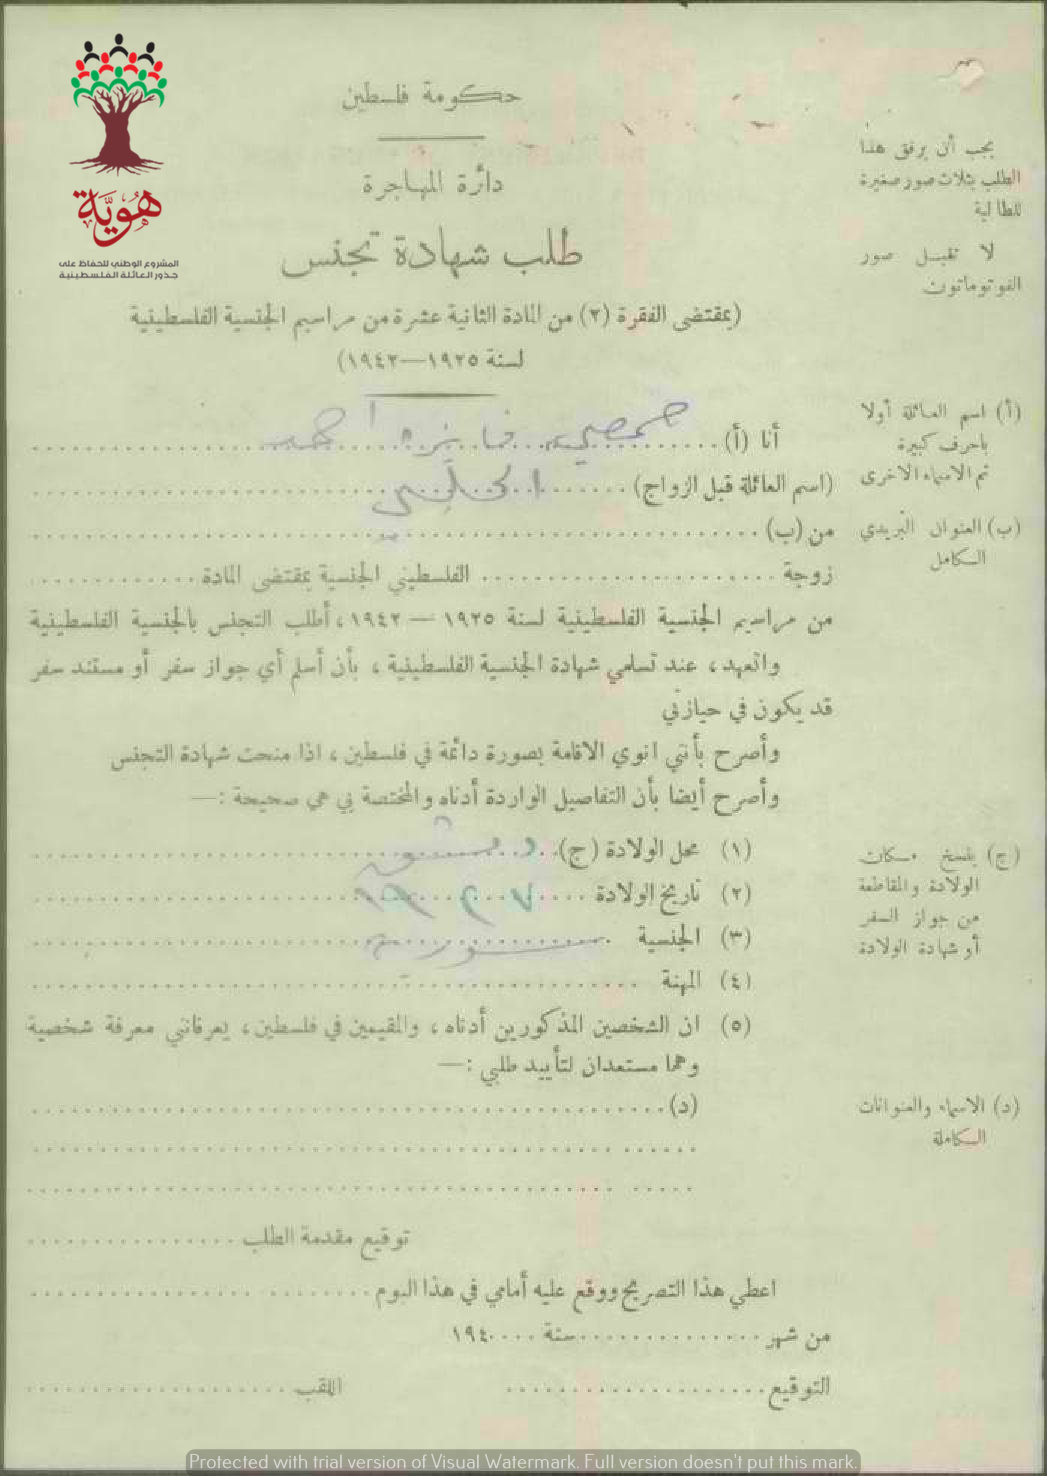 هوية
المشروع الوطني للحفاظ على
جذور العائلة الفلسطينية
حكومة فلسطين
دائرة المهاجرة
طلب شهادة تجنس
(بمقتضى الفقرة (٢) من المادة الثانية عشرة من مراسيم الجنسية الفلسطينية
لسنة ١٩٢٥—١٩٤٢)
يجب أن يرفق هذا
الطلب بثلاث صور صغيرة
للطالبة
لا تقبل صور
الفوتوماتون
أنا (أ) حمصي فايزه احمد
(اسم العائلة قبل الزواج) الحلبي
من (ب)
(أ) اسم العائلة أولا
باحرف كبيرة
ثم الاسماء الاخرى
(ب) العنوان البريدي
الكامل
زوجة الفلسطيني الجنسية بمقتضى المادة
من مراسيم الجنسية الفلسطينية لسنة ١٩٢٥ — ١٩٤٢، أطلب التجنس بالجنسية الفلسطينية
واتعهد، عند تسلمي شهادة الجنسية الفلسطينية، بأن أسلم أي جواز سفر أو مستند سفر
قد يكون في حيازتي
وأصرح بأنني انوي الاقامة بصورة دائمة في فلسطين، اذا منحت شهادة التجنس
وأصرح أيضا بأن التفاصيل الواردة أدناه والمختصة بي هي صحيحة :—
(١) محل الولادة (ج) دمشق
(٢) تاريخ الولادة
(٣) الجنسية سورية
(٤) المهنة
(ج) ينسخ مكان
الولادة والمقاطعة
من جواز السفر
أو شهادة الولادة
(٥) ان الشخصين المذكورين أدناه، والمقيمين في فلسطين، يعرفانني معرفة شخصية
وهما مستعدان لتأييد طلبي :—
(د)
(د) الاسماء والعنوانات
الكاملة
توقيع مقدمة الطلب
اعطي هذا التصريح ووقع عليه أمامي في هذا اليوم
من شهر سنة ١٩٤
التوقيع اللقب
Protected with trial version of Visual Watermark. Full version doesn't put this mark.